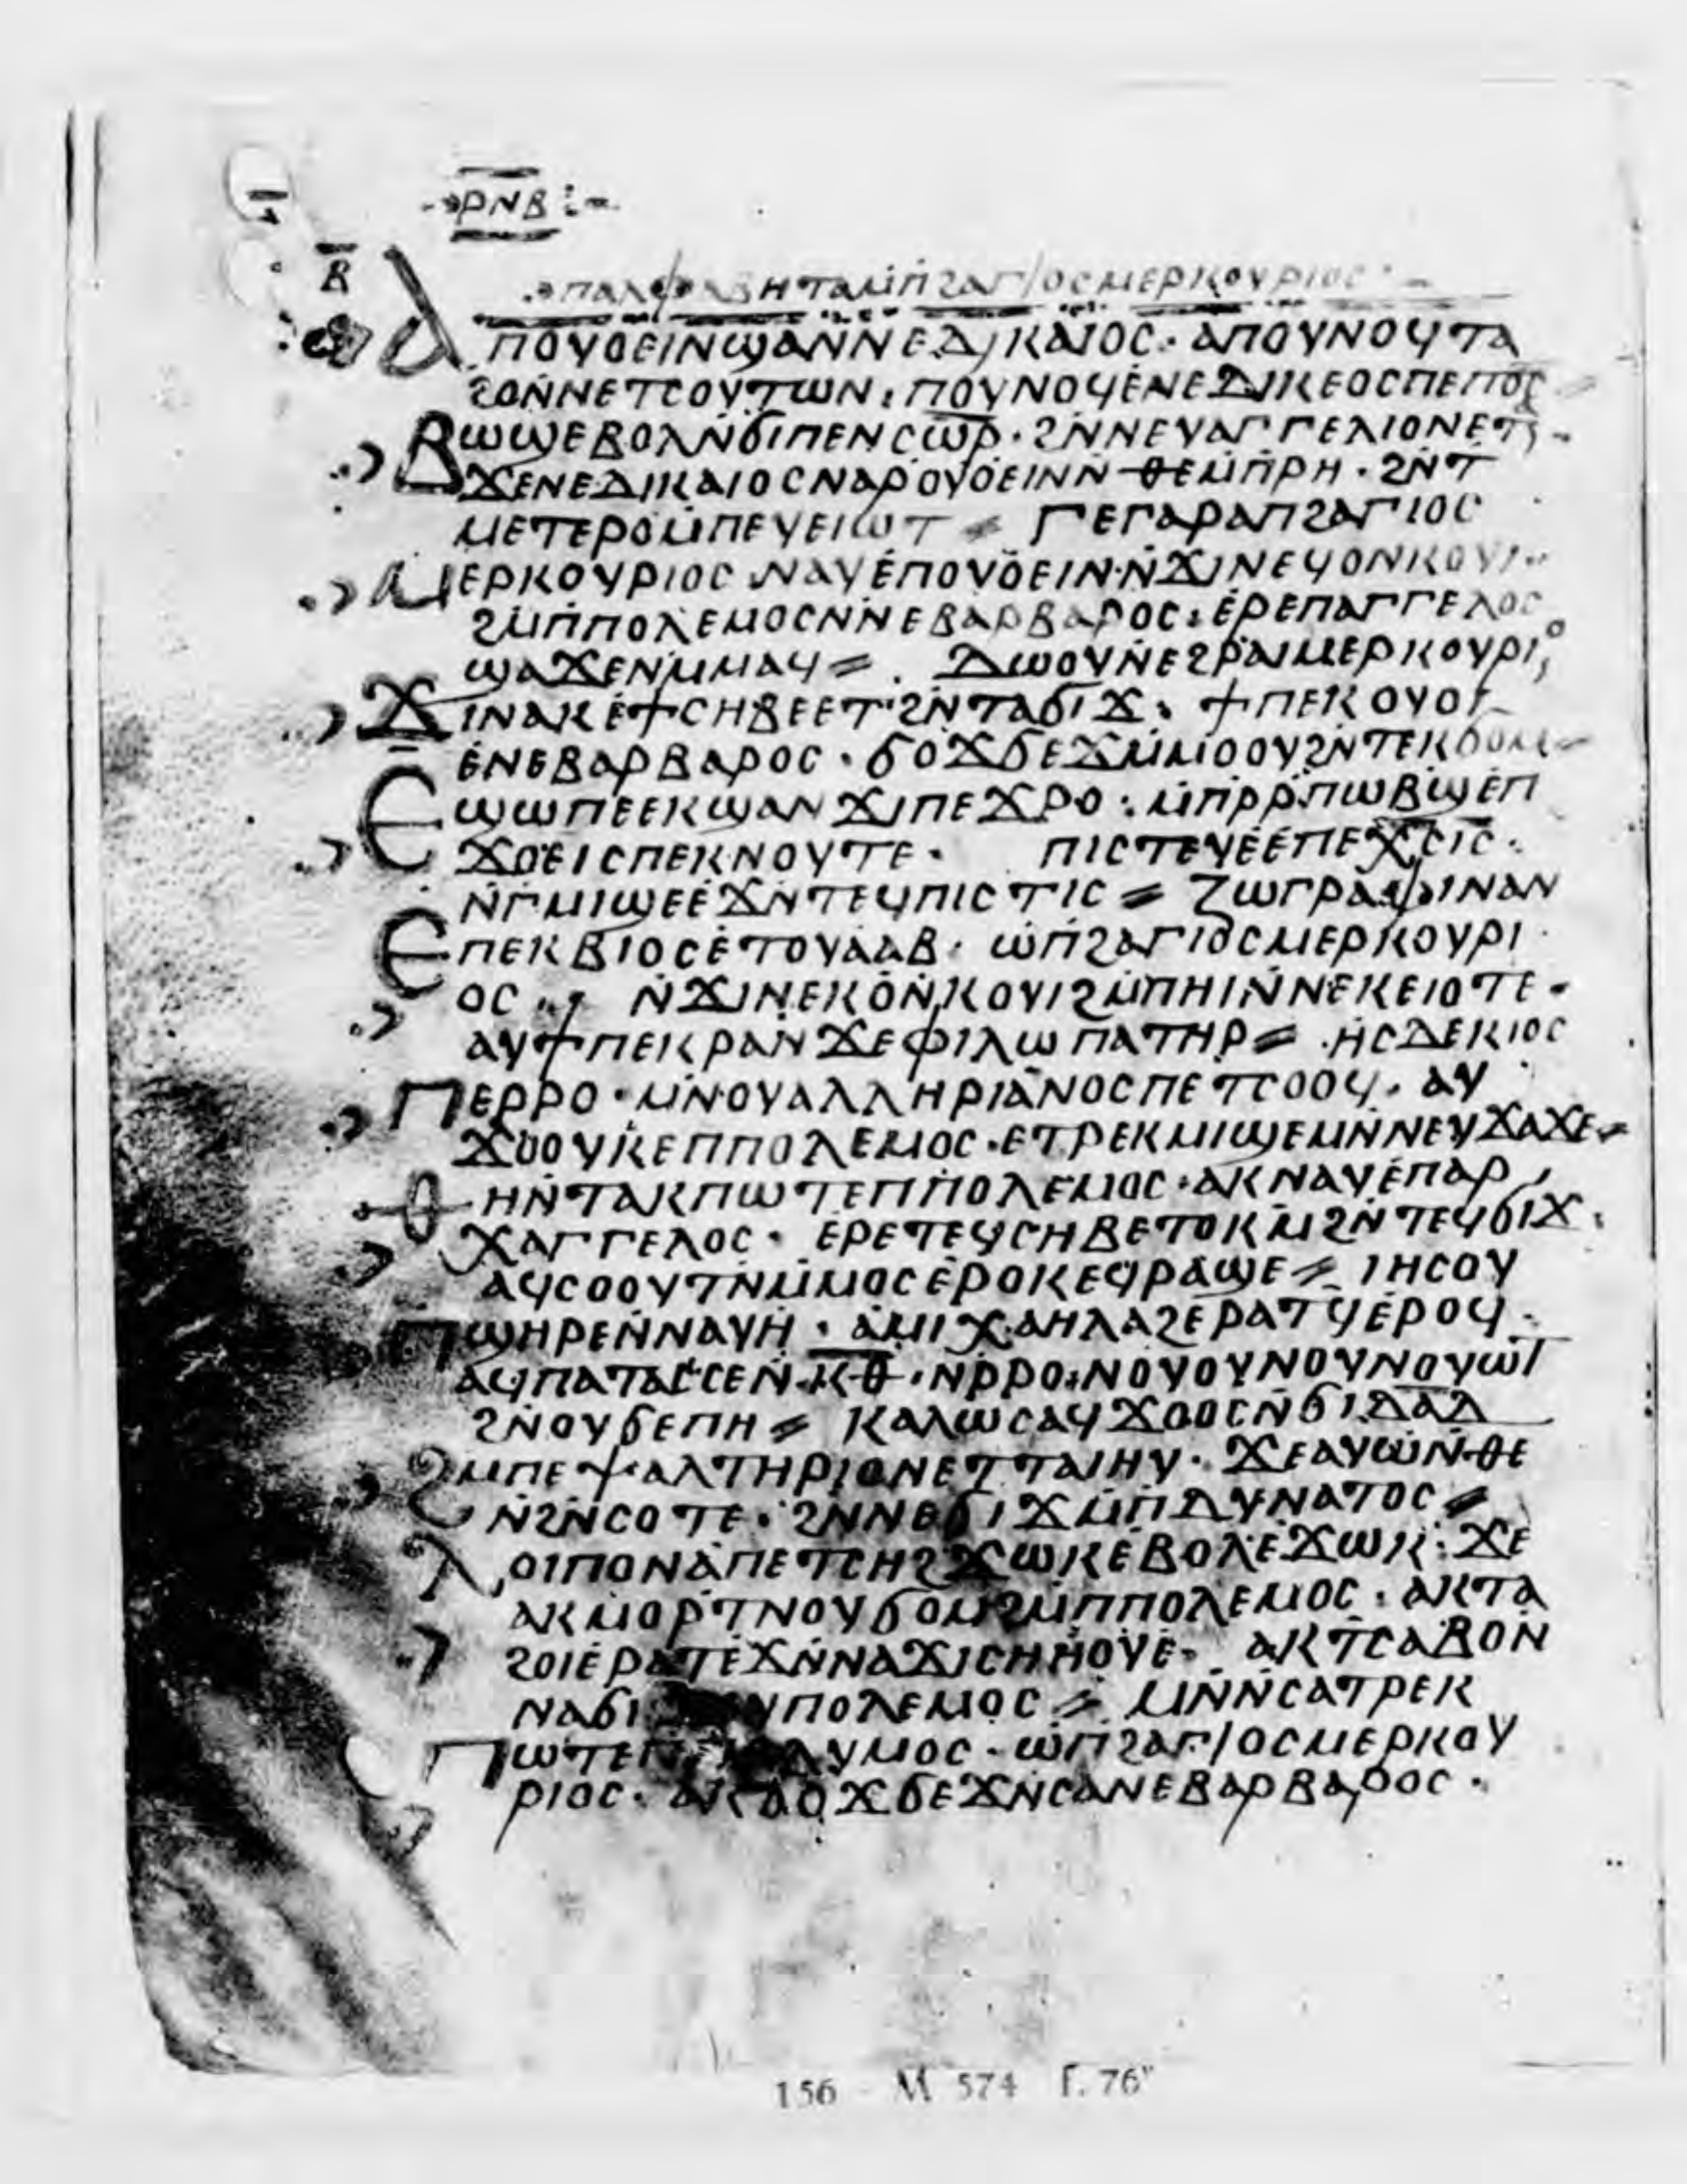 ⲣⲛⲃ
ⲃ̄
ⲡⲁⲗⲫⲁⲃⲏⲧⲁⲙ̄ⲡϩⲁⲅⲓⲟⲥⲙⲉⲣⲕⲟⲩⲣⲓⲟⲥ
ⲁⲡⲟⲩⲟⲉⲓⲛϣⲁⲛⲛⲉⲇⲓⲕⲁⲓⲟⲥ· ⲁⲡⲟⲩⲛⲟϥⲧⲁ
ϩⲟⲛ̄ⲛⲉⲧⲥⲟⲩⲧⲱⲛ· ⲡⲟⲩⲛⲟϥⲉ̇ⲛⲉⲇⲓⲕⲉⲟⲥⲡⲉⲡⲟⲥ
ⲃⲱϣⲉⲃⲟⲗⲛ̄ϭⲓⲡⲉⲛⲥⲱ̅ⲣ̅· ϩⲛ̄ⲛⲉⲩⲁⲅⲅⲉⲗⲓⲟⲛⲉⲧ
ϫⲉⲛⲉⲇⲓⲕⲁⲓⲟⲥⲛⲁⲣⲟⲩⲟⲉⲓⲛⲛ̄ⲑⲉⲙ̄ⲡⲣⲏ· ϩⲛ̄ⲧ
ⲙⲉⲧⲉⲣⲟⲙ̄ⲡⲉⲩⲉⲓⲱⲧ⸗ ⲅⲉⲅⲁⲣⲁⲡϩⲁⲅⲓⲟⲥ
ⲙⲉⲣⲕⲟⲩⲣⲓⲟⲥ ⲛⲁⲩⲉ̇ⲡⲟⲩⲟⲉⲓⲛ·ⲛ̄ϫⲓⲛⲉϥⲟⲛⲕⲟⲩⲓ
ϩⲙ̄ⲡⲡⲟⲗⲉⲙⲟⲥⲛ̄ⲛⲉⲃⲁⲣⲃⲁⲣⲟⲥ· ⲉ̇ⲣⲉⲡⲁⲅⲅⲉⲗⲟⲥ
ϣⲁϫⲉⲛⲙ̄ⲙⲁϥ⸗ ⲇⲱⲟⲩⲛⲉϩⲣⲁⲓⲙⲉⲣⲕⲟⲩⲣⲓⲟ
ϫⲓⲛⲁⲕⲉ̇ϯⲥⲏⲃⲉⲉⲧϩⲛ̄ⲧⲁϭⲓϫ· ϯⲡⲉⲕⲟⲩⲟⲓ
ⲉ̇ⲛⲉⲃⲁⲣⲃⲁⲣⲟⲥ· ϭⲟϫϭⲉϫⲙ̄ⲙⲟⲟⲩϩⲛ̄ⲧⲉⲕϭⲟⲙ
ⲉϣⲱⲡⲉⲉⲕϣⲁⲛϫⲓⲡⲉϫⲣⲟ: ⲙ̄ⲡⲣⲣ̄ⲡⲱⲃϣⲉ̇ⲡ
ϫⲟⲉⲓⲥⲡⲉⲕⲛⲟⲩⲧⲉ· ⲡⲓⲥⲧⲉⲩⲉ̇ⲉ̇ⲡⲉⲭ̅ⲥ̅ⲓ̅ⲥ̅·
ⲛ̄ⲅ̄ⲙⲓϣⲉⲉ̇ϫⲛ̄ⲧⲉϥⲡⲓⲥⲧⲓⲥ⸗ ⲍⲱⲅⲣⲁⲫⲓⲛⲁⲛ
ⲉⲡⲉⲕⲃⲓⲟⲥⲉ̇ⲧⲟⲩⲁⲁⲃ· ⲱ̇ⲡϩⲁⲅⲓⲟⲥⲙⲉⲣⲕⲟⲩⲣⲓ
ⲟⲥ ⲛ̄ϫⲓⲛⲉⲕⲟⲛⲕⲟⲩⲓϩⲙ̄ⲡⲏⲓⲛ̄ⲛⲉⲕⲉⲓⲟⲧⲉ·
ⲁⲩϯⲡⲉⲕⲣⲁⲛϫⲉⲫⲓⲗⲱⲡⲁⲧⲏⲣ⸗ ⲏⲥⲇⲉⲕⲓⲟⲥ
ⲡⲉⲣⲣⲟ·ⲙⲛ̄ⲟⲩⲁⲗⲗⲏⲣⲓⲁⲛⲟⲥⲡⲉⲧⲥⲟⲟϥ· ⲁⲩ
ϫⲟⲟⲩⲕⲉⲡⲡⲟⲗⲉⲙⲟⲥ·ⲉⲧⲣⲉⲕⲙⲓϣⲉⲙⲛ̄ⲛⲉⲩϫⲁϫⲉ⸗
ⲑⲏⲛ̄ⲧⲁⲕⲡⲱⲧⲉⲡⲡⲟⲗⲉⲙⲟⲥ·ⲁⲕⲛⲁⲩⲉ̇ⲡⲁⲣ
ⲭⲁⲅⲅⲉⲗⲟⲥ· ⲉⲣⲉⲧⲉϥⲥⲏⲃⲉⲧⲟⲕⲙ̄ϩⲛ̄ⲧⲉϥϭⲓϫ·
ⲁϥⲥⲟⲟⲩⲧⲛ̄ⲙ̄ⲙⲟⲥⲉ̇ⲣⲟⲕⲉϥⲣⲁϣⲉ⸗ ⲓⲏⲥⲟⲩ
ⲡϣⲏⲣⲉⲛ̄ⲛⲁⲩⲏ· ⲁ̇ⲙⲓⲭⲁⲏⲗⲁϩⲉⲣⲁⲧϥⲉ̇ⲣⲟϥ·
ⲁϥⲡⲁⲧⲁⲥⲥⲉⲛ̄·ⲕ̅ⲑ̅·ⲛ̄ⲣⲣⲟ·ⲛⲟⲩⲟⲩⲛⲟⲩⲛⲟⲩⲱⲧ
ϩⲛ̄ⲟⲩϭⲉⲡⲏ⸗ ⲕⲁⲗⲱⲥⲁϥϫⲟⲟⲥⲛ̄ϭⲓⲇⲁ̅ⲇ̅
ϩⲙ̄ⲡⲉⲯⲁⲗⲧⲏⲣⲓⲟⲛⲉⲧⲧⲁⲓⲏⲩ· ϫⲉⲁⲩⲱⲛ̄ⲑⲉ
ⲛ̄ϩⲛ̄ⲥⲟⲧⲉ· ϩⲛ̄ⲛⲉϭⲓϫⲙ̄ⲡⲇⲩⲛⲁⲧⲟⲥ⸗
ⲗⲟⲓⲡⲟⲛⲁ̇ⲡⲉⲧⲥⲏϩϫⲱⲕⲉ̇ⲃⲟⲗⲉ̇ϫⲱⲕ: ϫⲉ
ⲁⲕⲙⲟⲣⲧⲛⲟⲩϭⲟⲙϩⲙ̄ⲡⲡⲟⲗⲉⲙⲟⲥ· ⲁⲕⲧⲁ
ϩⲟⲓⲉ̇ⲣⲁⲧⲉ̇ϫⲛ̄ⲛⲁϫⲓⲥⲏⲏⲟⲩⲉ· ⲁⲕⲧⲥⲁⲃⲟⲛ
ⲛⲁϭⲓ ⲡⲟⲗⲉⲙⲟⲥ⸗ ⲙⲛ̄ⲛ̄ⲥⲁⲧⲣⲉⲕ
ⲡⲱⲧⲉ ⲩⲙⲟⲥ·ⲱ̇ⲡϩⲁⲅⲓⲟⲥⲙⲉⲣⲕⲟⲩ
ⲣⲓⲟⲥ· ⲁⲕϭⲟϫϭⲉϫⲛ̄ⲥⲁⲛⲉⲃⲁⲣⲃⲁⲣⲟⲥ·
156 M 574 f. 76ᵛ